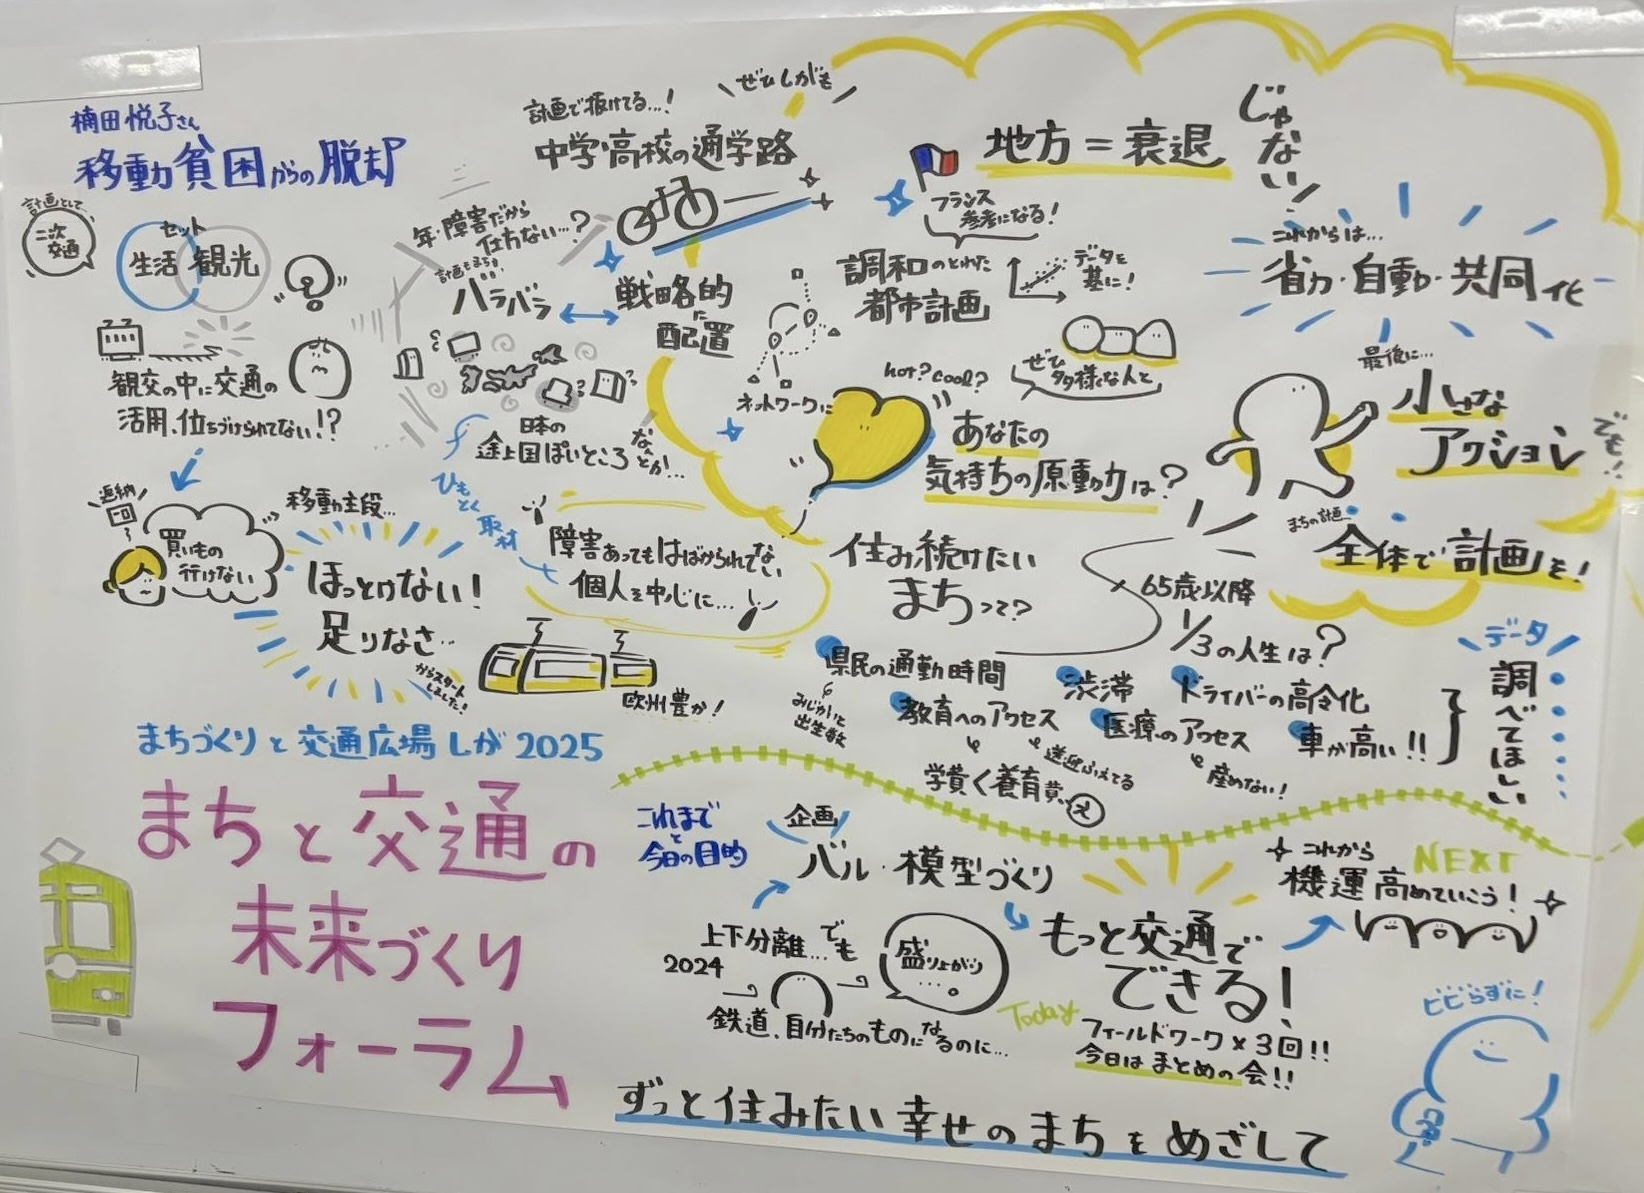 楠田悦子さん
移動貧困からの脱却
計画として
二次
交通
セット
生活 観光
観交の中に交通の
活用、位ちづけられてない!?
返納
買いもの
行けない
移動手段…
ほっとけない!
足りなさ…
からスタート
しました!
計画で抜けてる…!
ぜひしがも
中学・高校の通学路
年・障害だから
仕方ない…?
計画もまちも
バラバラ
戦略的に
配置
日本の
途上国ぽいところなどが…
ひもとく
取材
障害あってもはばかられてない
個人を中心に…
欧州豊か!
ネットワークに
地方=衰退じゃない!
フランス
参考になる!
調和のとれた
都市計画
データを
基に!
ぜひ
多様な人と
hot? cool?
あなたの
気持ちの原動力は?
これからは…
省力・自動・共同化
最後に…
小さな
アクションでも!
まちの計画
全体で計画を!
住み続けたい
まちって?
65歳以降
1/3の人生は?
県民の通勤時間
みじかいと
出生数
教育へのアクセス
送迎ふえてる
学費く養育費
渋滞
医療のアクセス
産めない!
ドライバーの高令化
車が高い!!
データ
調べてほしい
まちづくりと交通広場しが2025
まちと交通の
未来づくり
フォーラム
これまで
と
今日の目的
企画
バル・模型づくり
上下分離…でも
2024
盛り上がり
…。
鉄道、自分たちのものになるのに…
もっと交通で
できる!
Today
フィールドワーク×3回!!
今日はまとめの会!!
これから
NEXT
機運高めていこう!
ビビらずに!
ずっと住みたい幸せのまちをめざして